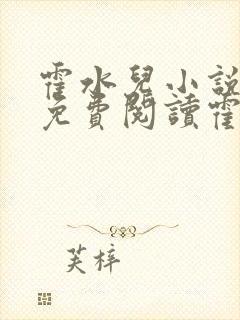 霍水兒小說
免費閱讀霍
芙梓